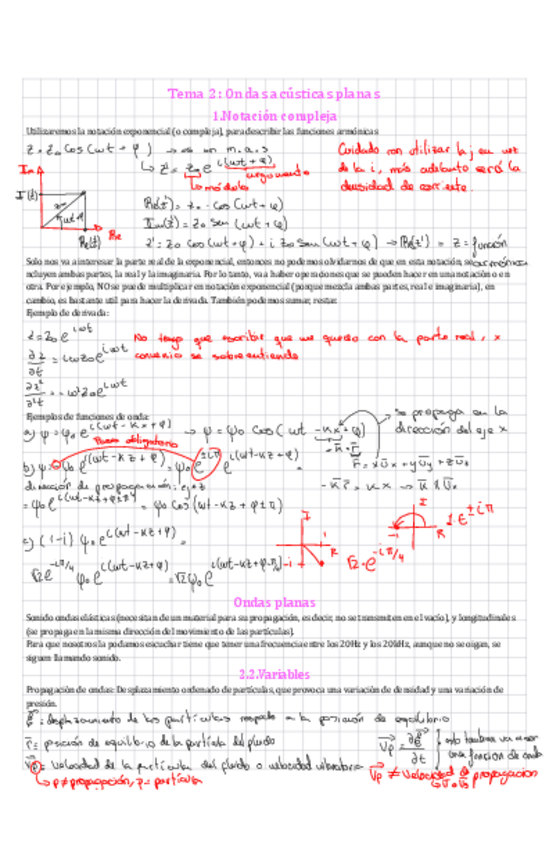 Tema 2: Ondas acústicas planas
1.Notación compleja
Utilizaremos la notación exponencial (o compleja), para describir las funciones armónicas
z = z₀ cos(ωt + φ) → es un m.a.s
Cuidado con utilizar la j en vez
de la i, más adelante será la
densidad de corriente.
Im
z' = z₀ e^i(ωt+φ)
argumento
módulo
I(t)
Re(t)
Re
Re(z') = z₀ · cos(ωt+φ)
Im(z') = z₀ sen(ωt+φ)
z' = z₀ cos(ωt+φ) + i z₀ sen(ωt+φ) → Re(z') = z = función
armónica
Solo nos va interesar la parte real de la exponencial, entonces no podemos olvidarnos de que en esta notación, se
incluyen ambas partes, la real y la imaginaria. Por lo tanto, va a haber operaciones que se pueden hacer en una notación o en
otra. Por ejemplo, NO se puede multiplicar en notación exponencial (porque mezcla ambas partes, real e imaginaria), en
cambio, es bastante util para hacer la derivada. También podemos sumar, restar.
Ejemplo de derivada:
z = z₀ e^iωt
No tengo que escribir que me quedo con la parte real, x
convenio se sobreentiende
∂z/∂t = iωz₀ e^iωt
∂z²/∂²t = -ω² z₀ e^iωt
Ejemplos de funciones de onda:
a) ψ = ψ₀ e^i(ωt-kx+φ) → ψ = ψ₀ cos(ωt - kx + φ)
se propaga en la
dirección del eje x
Paso obligatorio
b) ψ = -ψ₀ e^i(ωt-kz+φ) = ψ₀ e^±iπ e^i(ωt-kz+φ)
-k·r
r = xūx + yūy + zūz
dirección de propagación: eje z
-k·r = kx → k ∥ ūx
= ψ₀ e^i(ωt-kz+φ±π) = ψ₀ cos(ωt - kz + φ ± π)
I
R
-1
1·e^±iπ
c) (1-i) ψ₀ e^i(ωt-kz+φ) =
I
R
-i
√2·e^-iπ/4
√2 e^-iπ/4 ψ₀ e^i(ωt-kz+φ) = √2 ψ₀ e^i(ωt-kz+φ-π/4)
Ondas planas
Sonido ondas elásticas (necesitan de un material para su propagación, es decir, no se transmiten en el vacío), y longitudinales
(se propaga en la misma dirección del movimiento de las partículas).
Para que nosotros la podamos escuchar tiene que tener una frecuencia entre los 20Hz y los 20kHz, aunque no se oigan, se
siguen llamando sonido.
2.2.Variables
Propagación de ondas: Desplazamiento ordenado de partículas, que provoca una variación de densidad y una variación de
presión.
ξ: desplazamiento de las partículas respecto a la posición de equilibrio
r = posición de equilibrio de la partícula del fluido
vp = ∂ξ/∂t
esto también va a ser
una función de onda
vp = velocidad de la partícula del fluido o velocidad vibratoria
vp ≠ velocidad de propagación
p ≠ propagación, p = partícula